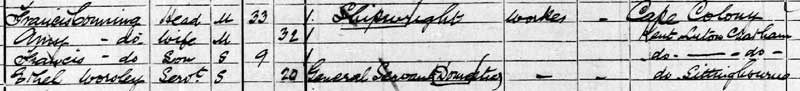 Francis Conning Head M 33 1 Shipwright Worker - Cape Colony
Amy - do Wife M 32 1 Kent Luton Chatham
Francis - do Son S 9 1 -do- - -do-
Ethel Worsley Servt. S 20 General Servant (Domestic) - - do Sittingbourne